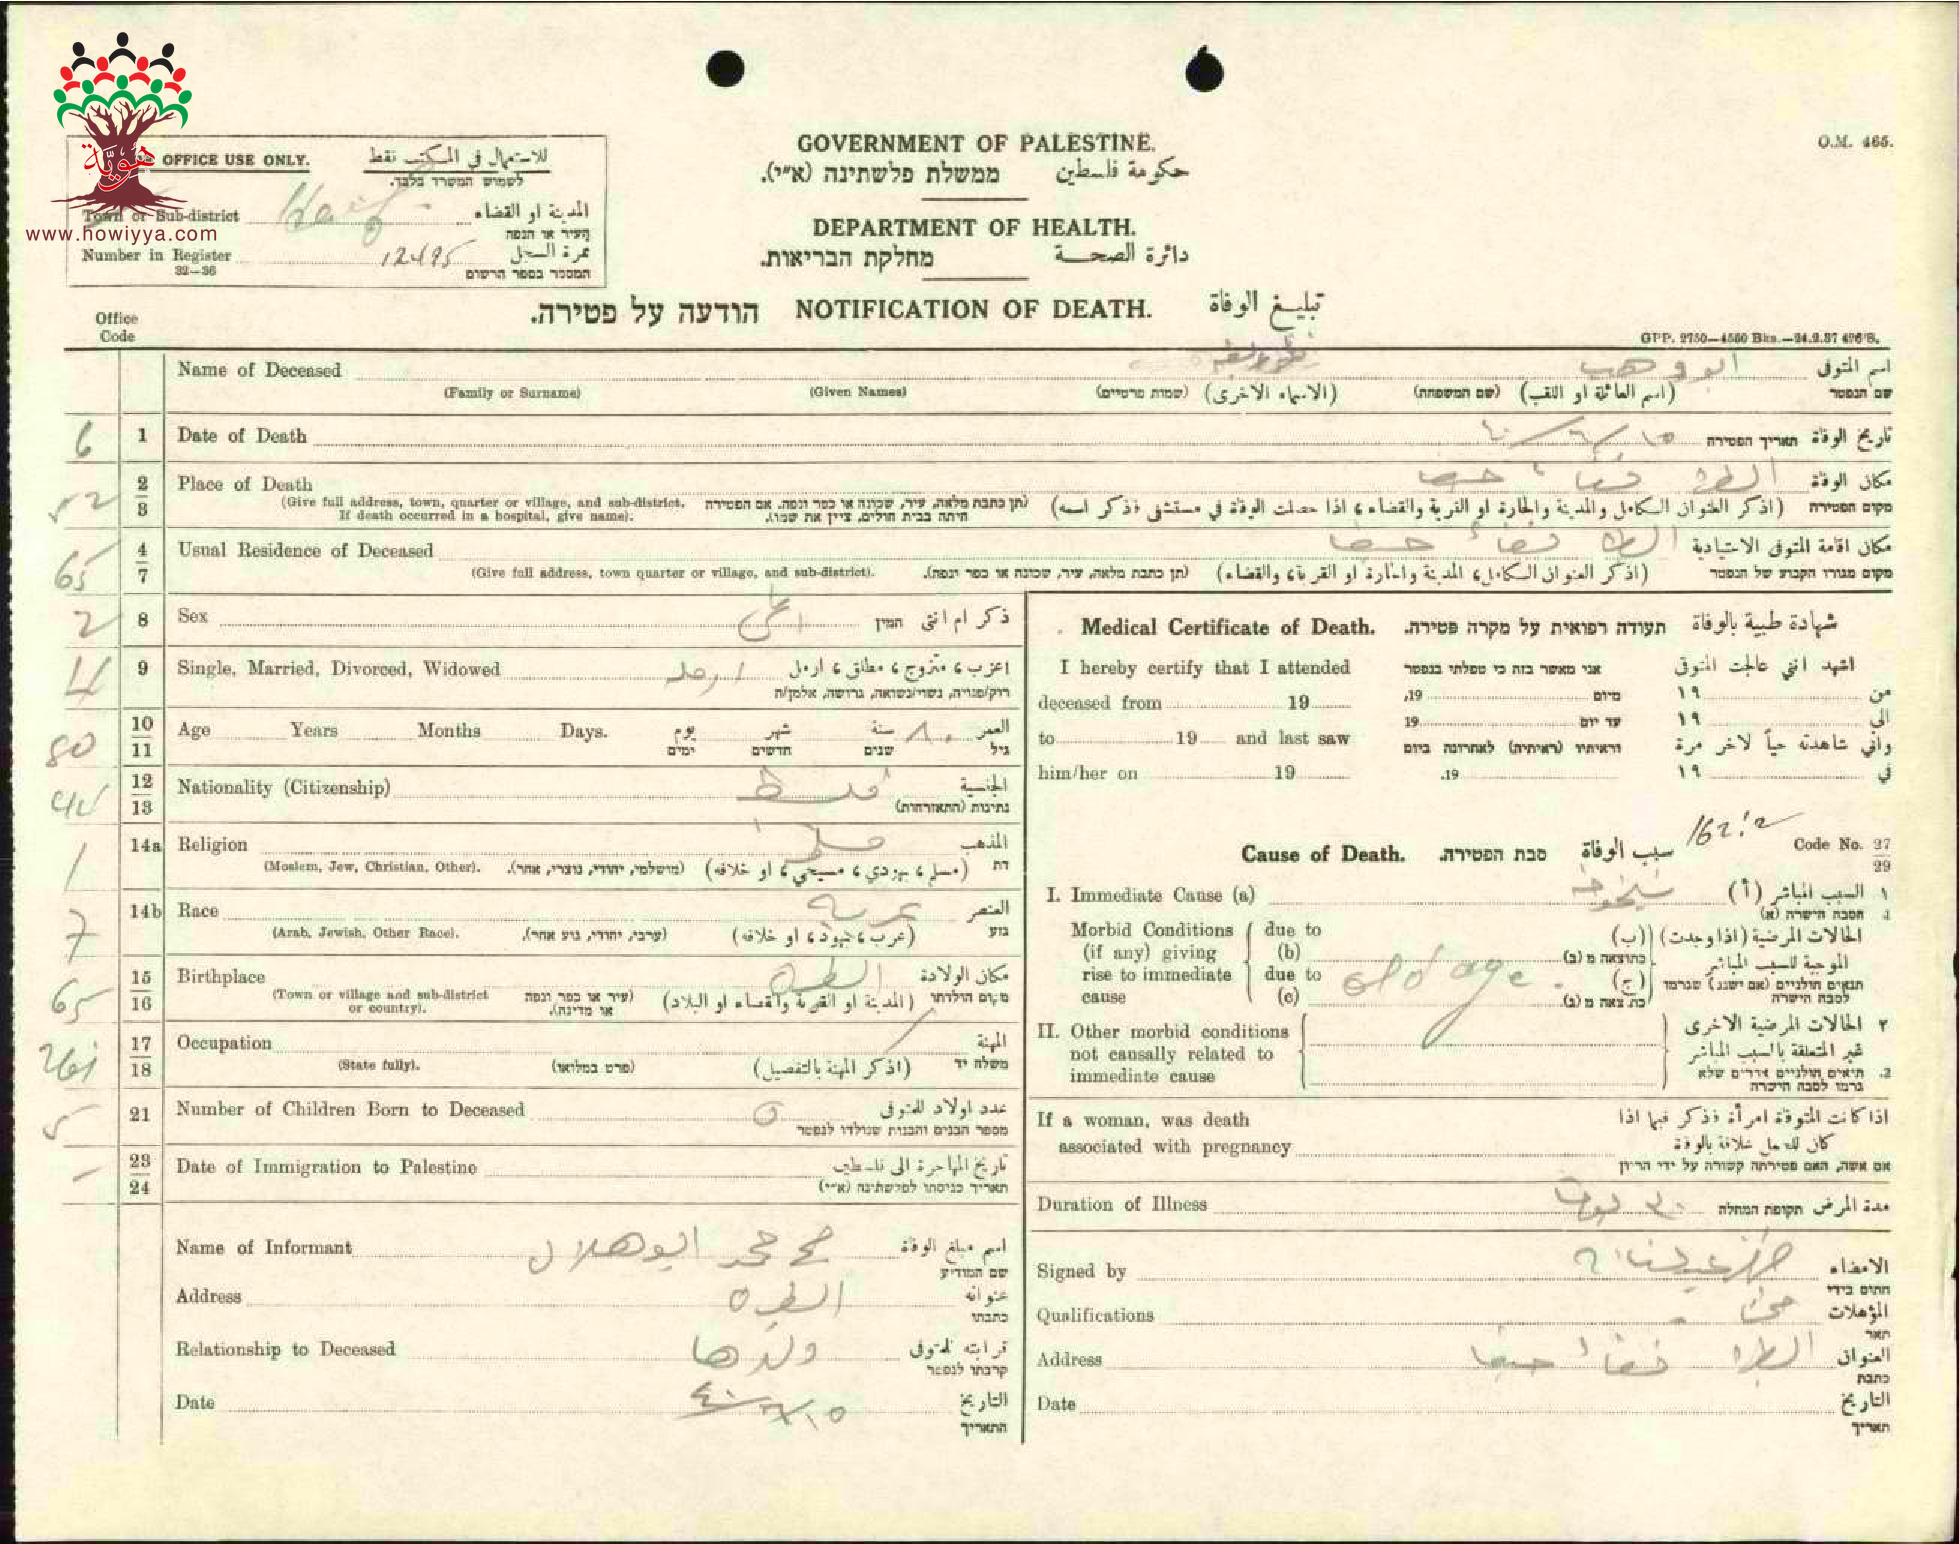 هوية
www.howiyya.com
O.M. 465.
OFFICE USE ONLY. للاستعمال في المكتب فقط
לשמוש המשרד בלבד.
Town or Sub-district المدينة او القضاء
העיר או הנפה
Number in Register 12495 نمرة السجل
32–36 המספר בספר הרשום
GOVERNMENT OF PALESTINE.
ממשלת פלשתינה (א״י). حكومة فلسطين
DEPARTMENT OF HEALTH.
מחלקת הבריאות. دائرة الصحة
הודעה על פטירה. NOTIFICATION OF DEATH. تبليغ الوفاة
Office
Code
GPP. 2750—4550 Bks.—24.2.37
Name of Deceased ابو وهب اسم المتوفى
(Family or Surname) (Given Names) (שמות פרטיים) (الاسماء الاخرى) (שם המשפחה) (اسم العائلة او اللقب) שם הנפטר
6 1 Date of Death תאריך הפטירה تاريخ الوفاة
52 2 3 Place of Death الطيره قضاء حيفا مكان الوفاة
(Give full address, town, quarter or village, and sub-district. If death occurred in a hospital, give name). (תן כתבת מלאה, עיר, שכונה או כפר ונפה. אם הפטירה היתה בבית חולים, ציין את שמו). (اذكر العنوان الكامل والمدينة والحارة او القرية والقضاء، اذا حصلت الوفاة في مستشفى فذكر اسمه) מקום הפטירה
65 4 7 Usual Residence of Deceased الطيره قضاء حيفا مكان اقامة المتوفى الاعتيادية
(Give full address, town quarter or village, and sub-district). (תן כתבת מלאה, עיר, שכונה או כפר ונפה). (اذكر العنوان الكامل، المدينة والحارة او القرية، والقضاء) מקום מגורו הקבוע של הנפטר
2 8 Sex המין ذكر ام انثى
4 9 Single, Married, Divorced, Widowed اعزب، متزوج، مطلق، ارمل
רוק/פנויה, נשוי/נשואה, גרושה, אלמן/ה
80 10 11 Age Years Months Days. يوم شهر سنة ٨٠ العمر
ימים חדשים שנים גיל
12 13 Nationality (Citizenship) الجنسية
נתינות (התאזרחות)
1 14a Religion المذهب
(Moslem, Jew, Christian, Other). (מושלמי, יהודי, נוצרי, אחר). (مسلم، يهودي، مسيحي، او خلافه) דת
7 14b Race عربيه العنصر
(Arab, Jewish, Other Race). (ערבי, יהודי, גזע אחר). (عرب، يهود، او خلافه) גזע
65 15 16 Birthplace الطيره مكان الولادة
(Town or village and sub-district or country). (עיר או כפר ונפה או מדינה). (المدينة او القرية والقضاء او البلاد) מקום הולדתו
17 18 Occupation المهنة
(State fully). (פרט במלואו) (اذكر المهنة بالتفصيل) משלח יד
5 21 Number of Children Born to Deceased ٥ عدد اولاد المتوفى
מספר הבנים והבנות שנולדו לנפטר
23 24 Date of Immigration to Palestine تاريخ المهاجرة الى فلسطين
תאריך כניסתו לפלשתינה (א״י)
Name of Informant محمد ابو هلال اسم مبلغ الوفاة
שם המודיע
Address الطيره عنوانه
כתבתו
Relationship to Deceased ولدها قرابته للمتوفى
קרבתו לנפטר
Date التاريخ
התאריך
Medical Certificate of Death. תעודה רפואית על מקרה פטירה. شهادة طبية بالوفاة
I hereby certify that I attended אני מאשר בזה כי טפלתי בנפטר اشهد اني عالجت المتوفى
deceased from 19 מיום 19, من ١٩
to 19 and last saw עד יום 19 الى ١٩
וראיתיו (ראיתיה) לאחרונה ביום واني شاهدته حياً لاخر مرة
him/her on 19 19. في ١٩
Cause of Death. סבת הפטירה. سبب الوفاة 162.2 Code No. 27 29
I. Immediate Cause (a) شيخوخه السبب المباشر (أ) ١
הסבה הישרה (א)
Morbid Conditions (if any) giving rise to immediate cause due to (b) due to (c) old age. الحالات المرضية (اذا وجدت) (ب)
الموجبة للسبب المباشر (ج)
II. Other morbid conditions not causally related to immediate cause ٢ الحالات المرضية الاخرى
غير المتعلقة بالسبب المباشر
If a woman, was death اذا كانت المتوفاة امرأة فذكر فيما اذا
associated with pregnancy كان للحمل علاقة بالوفاة
אם אשה, האם פטירתה קשורה על ידי הריון
Duration of Illness תקופת המחלה مدة المرض
Signed by الامضاء
חתום בידי
Qualifications المؤهلات
תאר
Address الطيره قضاء حيفا العنوان
כתבת
Date التاريخ
תאריך